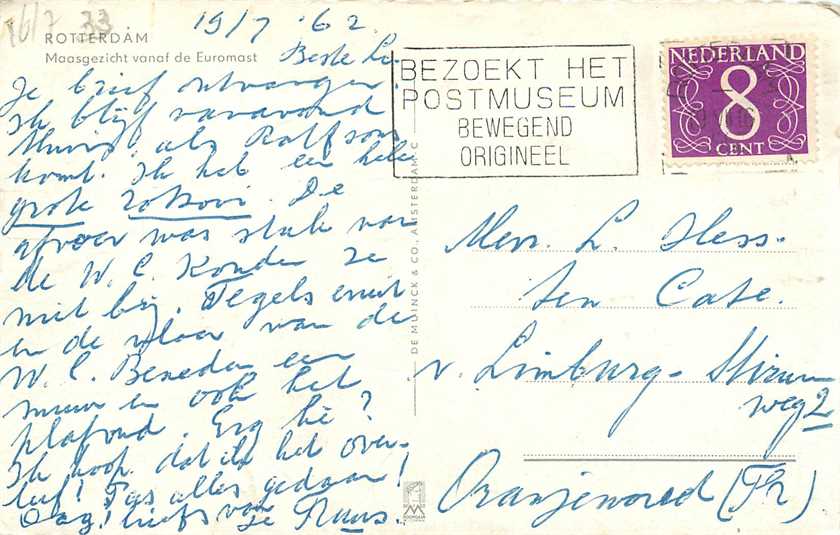 16/7 33
19/7 '62
ROTTERDAM
Maasgezicht vanaf de Euromast
Beste
Je brief ontvangen
Ik blijf vanavond
thuis als Rolf soms
komt. Ik heb een hele
grote De
afvoer was stuk van
de W.C. Konden ze
niet bij. Tegels eruit
en de vloer van de
W.C. Beneden een
muur en ook het
plafond. Erg hè?
Ik hoop dat ik het over-
leef! Pas alles gedaan!
Dag! liefs van
BEZOEKT HET
POSTMUSEUM
BEWEGEND
ORIGINEEL
NEDERLAND
8
CENT
DE MUINCK & CO. AMSTERDAM-C
Mevr. L. Hess-
ten Cate.
v. Limburg-Stirum
weg 2
Oranjewoud (Fr)